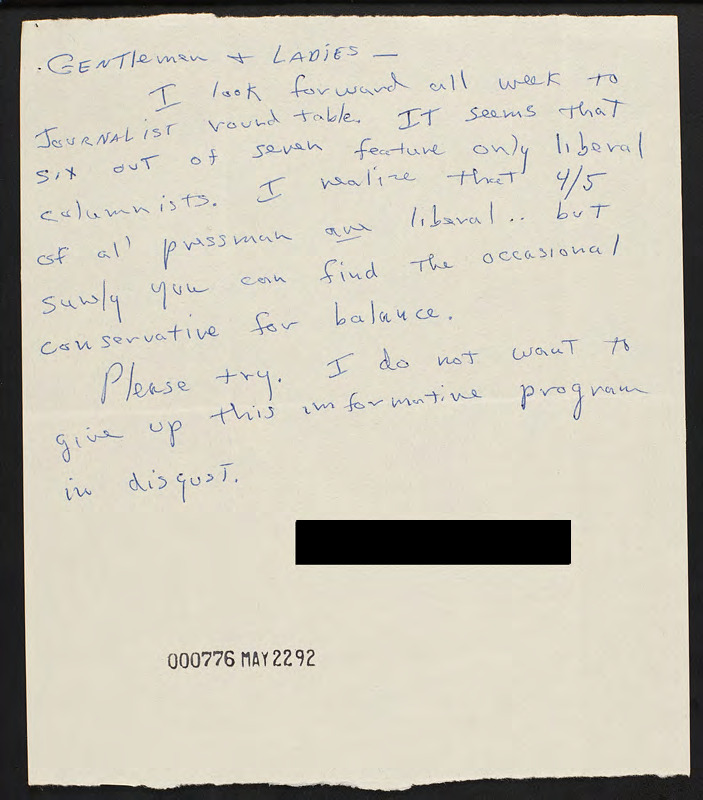 Gentleman + Ladies —
I look forward all week to
Journalist round table. It seems that
six out of seven feature only liberal
columnists. I realize that 4/5
of all pressman are liberal.. but
surely you can find the occasional
conservative for balance.
Please try. I do not want to
give up this informative program
in disgust.
000776 MAY 22 92